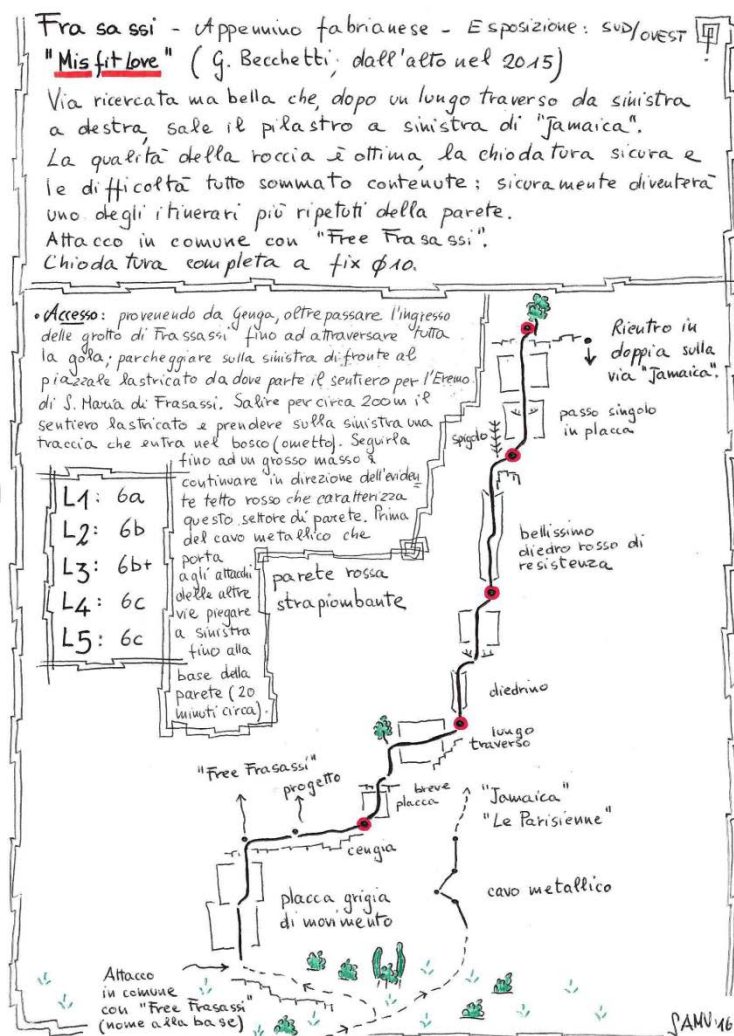 Frasassi - Appennino fabrianese - Esposizione: SUD/OVEST
"Misfit Love" (G. Becchetti, dall'alto nel 2015)
Via ricercata ma bella che, dopo un lungo traverso da sinistra
a destra, sale il pilastro a sinistra di "Jamaica".
La qualità della roccia è ottima, la chiodatura sicura e
le difficoltà tutto sommato contenute; sicuramente diventerà
uno degli itinerari più ripetuti della parete.
Attacco in comune con "Free Frasassi".
Chiodatura completa a fix ϕ10.
• Accesso: provenendo da Genga, oltrepassare l'ingresso
delle grotto di Frassassi fino ad attraversare tutta
la gola; parcheggiare sulla sinistra di fronte al
piazzale lastricato da dove parte il sentiero per l'Eremo
di S. Maria di Frasassi. Salire per circa 200m il
sentiero lastricato e prendere sulla sinistra una
traccia che entra nel bosco (ometto). Seguirla
fino ad un grosso masso e
continuare in direzione dell'eviden
te tetto rosso che caratterizza
questo settore di parete. Prima
del cavo metallico che
porta
agli attacchi
delle altre
vie piegare
a sinistra
fino alla
base della
parete (20
minuti circa).
L1: 6a
L2: 6b
L3: 6b+
L4: 6c
L5: 6c
Rientro in
doppia sulla
via "Jamaica".
passo singolo
in placca
spigolo
bellissimo
diedro rosso di
resistenza
parete rossa
strapiombante
diedrino
lungo
traverso
"Free Frasassi"
progetto
breve
placca
"Jamaica"
"Le Parisienne"
cengia
cavo metallico
placca grigia
di movimento
Attacco
in comune
con "Free Frasassi"
(nome alla base)
SAMU '16